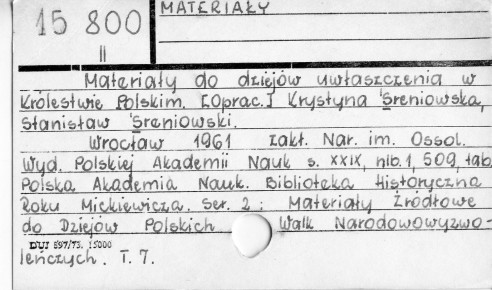 15 800
II
MATERIAŁY
Materiały do dziejów uwłaszczenia w
Królestwie Polskim. [Oprac.] Krystyna Śreniowska,
Stanisław Śreniowski.
Wrocław 1961 Zakł. Nar. im. Ossol.
Wyd. Polskiej Akademii Nauk s. XXIX, nlb. 1, 509, tab.
Polska Akademia Nauk. Biblioteka Historyczna
Roku Mickiewicza. Ser. 2: Materiały Źródłowe
do Dziejów Polskich Walk Narodowowyzwo-
DUJ 897/73. 15000
leńczych. T. 7.